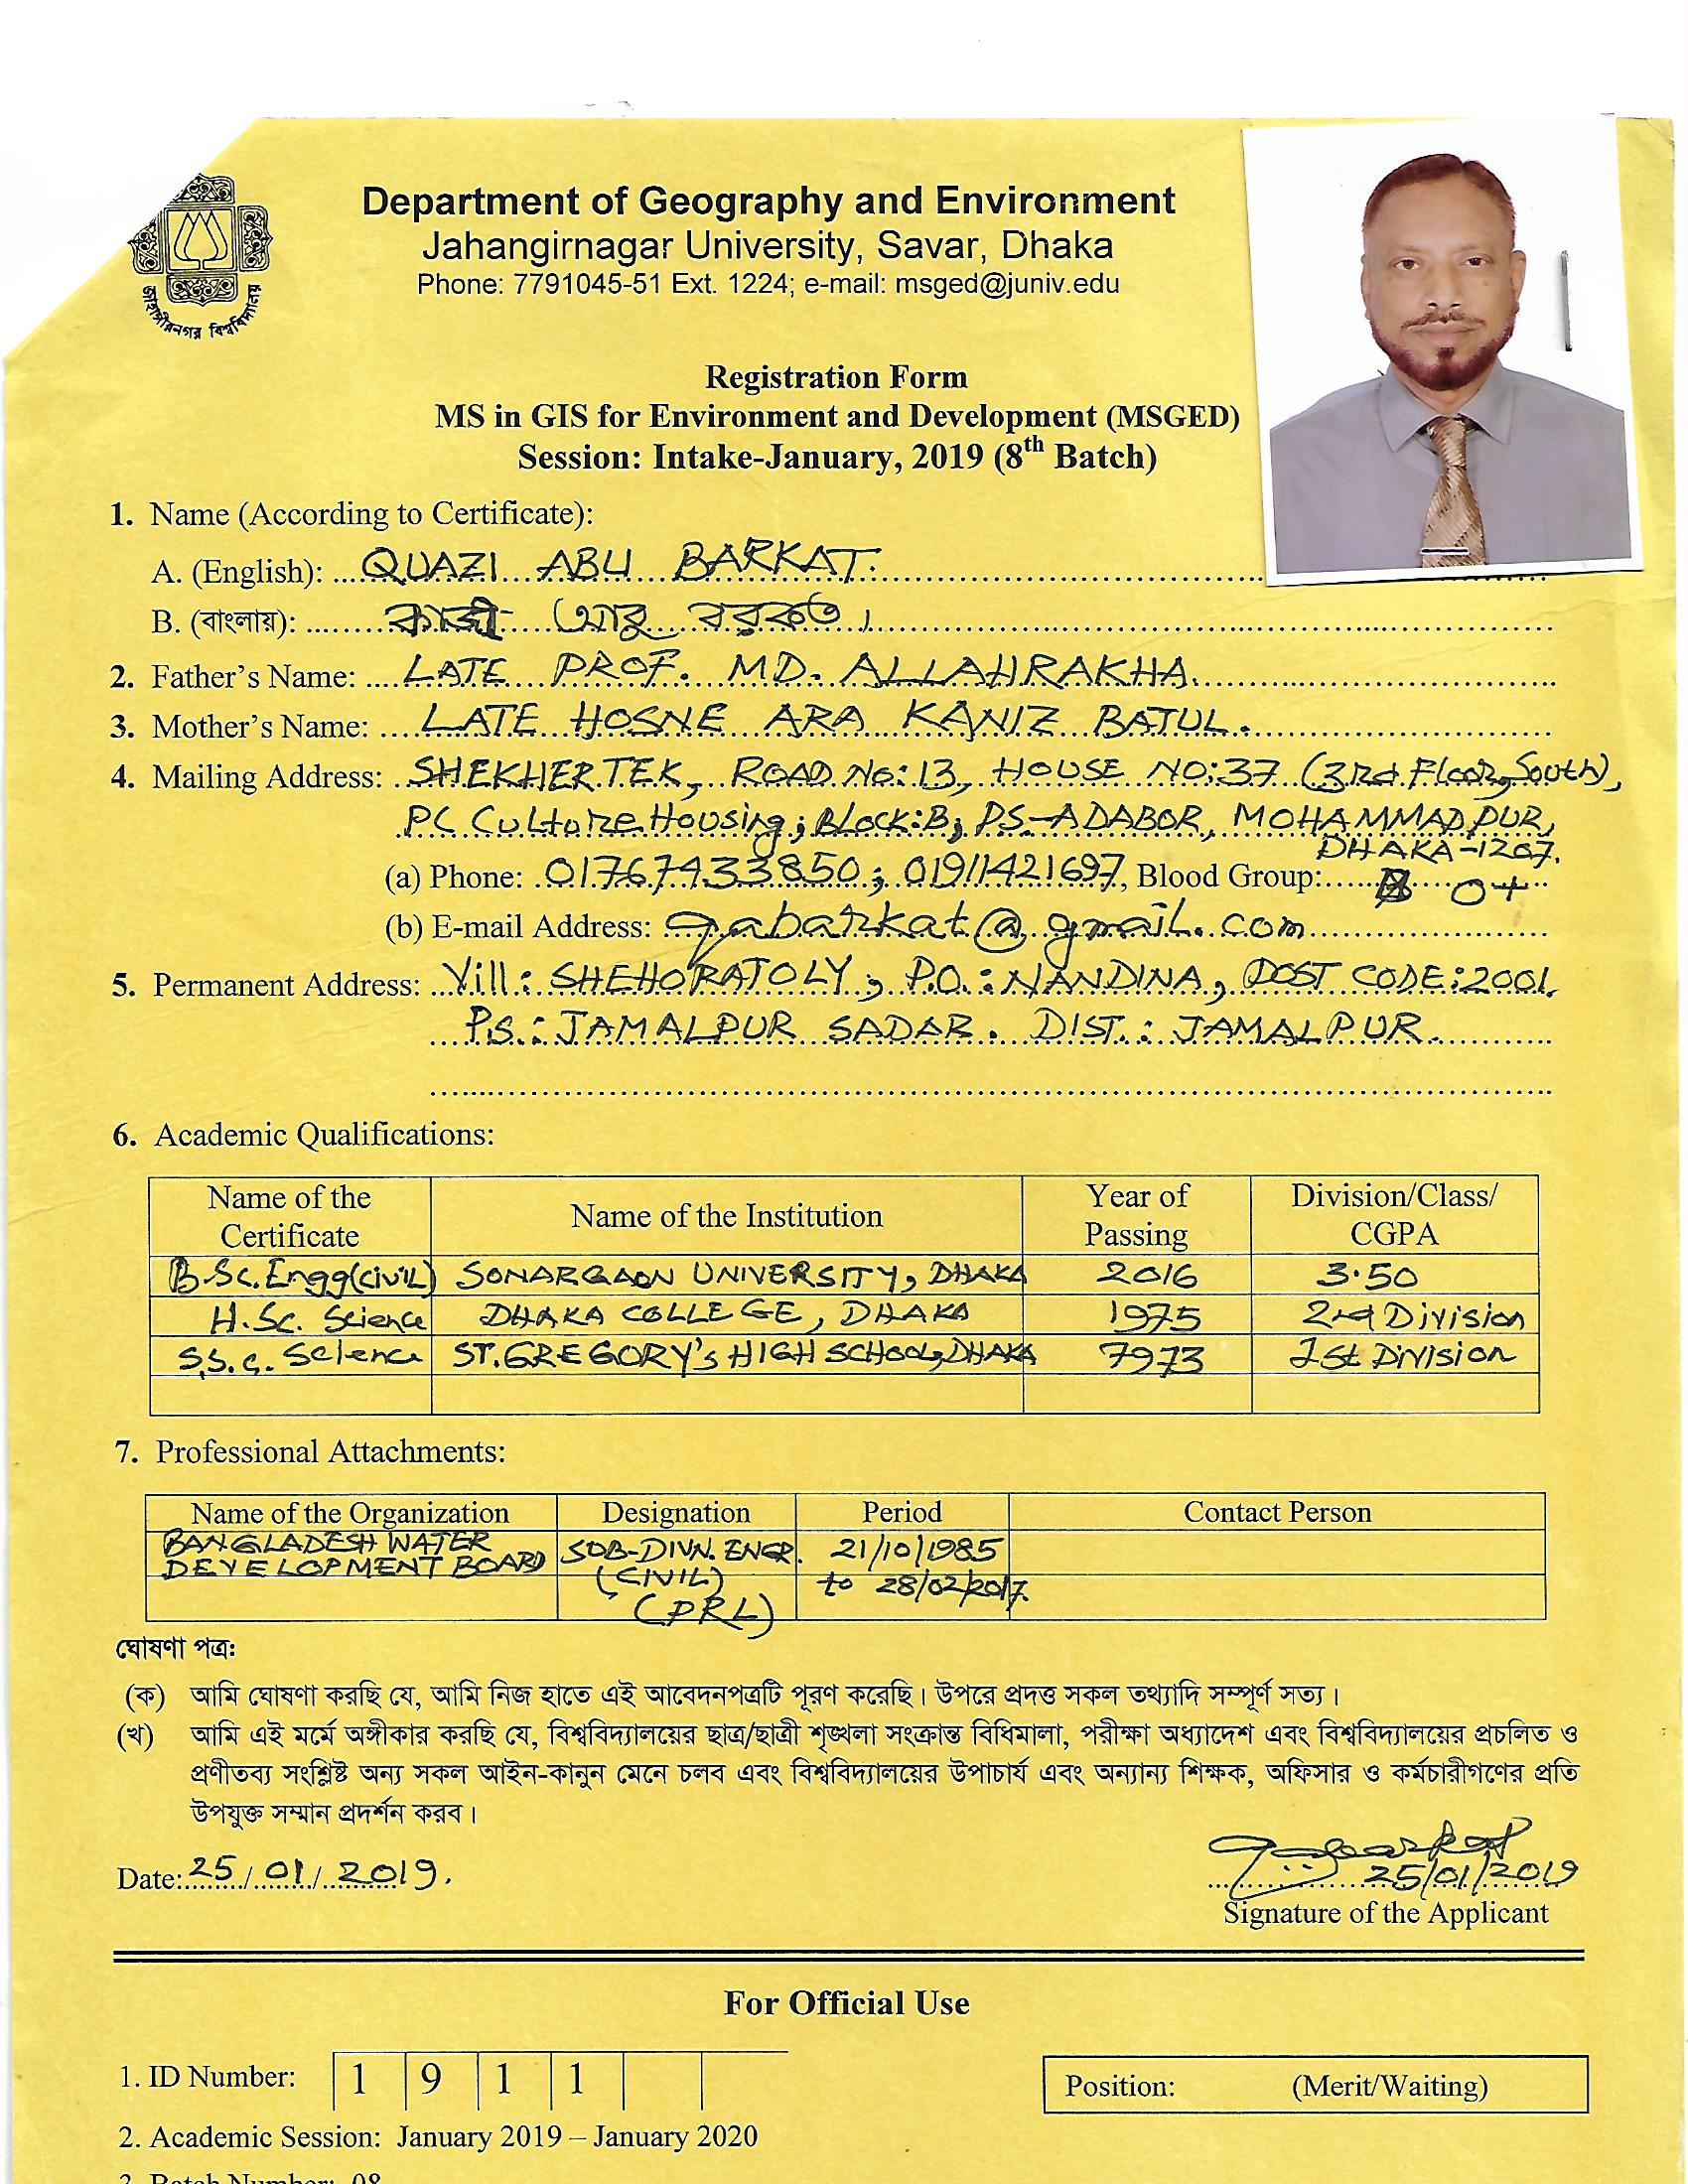 জাহাঙ্গীরনগর বিশ্ববিদ্যালয়
Department of Geography and Environment
Jahangirnagar University, Savar, Dhaka
Phone: 7791045-51 Ext. 1224; e-mail: msged@juniv.edu
Registration Form
MS in GIS for Environment and Development (MSGED)
Session: Intake-January, 2019 (8th Batch)
1. Name (According to Certificate):
A. (English): QUAZI ABU BARKAT.
B. (বাংলায়): কাজী আবু বরকত।
2. Father's Name: LATE PROF. MD. ALLAHRAKHA.
3. Mother's Name: LATE HOSNE ARA KANIZ BATUL.
4. Mailing Address: SHEKHERTEK, ROAD No: 13, HOUSE NO: 37 (3rd Floor, South),
PC Culture Housing; Block: B; PS-ADABOR, MOHAMMADPUR,
DHAKA-1207.
(a) Phone: 01767433850; 01911421697, Blood Group: O+
(b) E-mail Address: qabarkat@gmail.com
5. Permanent Address: Vill: SHEHORATOLY, P.O.: NANDINA, POST CODE: 2001.
P.S.: JAMALPUR SADAR. DIST.: JAMALPUR.
6. Academic Qualifications:
Name of the Certificate Name of the Institution Year of Passing Division/Class/CGPA
B.Sc. Engg (civil) SONARGAON UNIVERSITY, DHAKA 2016 3.50
H.Sc. Science DHAKA COLLEGE, DHAKA 1975 2nd Division
S.S.c. Science ST. GREGORY'S HIGH SCHOOL, DHAKA 1973 1st Division
7. Professional Attachments:
Name of the Organization Designation Period Contact Person
BANGLADESH WATER DEVELOPMENT BOARD SUB-DIVN. ENGR. (CIVIL) (PRL) 21/10/1985 to 28/02/2017.
ঘোষণা পত্র:
(ক) আমি ঘোষণা করছি যে, আমি নিজ হাতে এই আবেদনপত্রটি পূরণ করেছি। উপরে প্রদত্ত সকল তথ্যাদি সম্পূর্ণ সত্য।
(খ) আমি এই মর্মে অঙ্গীকার করছি যে, বিশ্ববিদ্যালয়ের ছাত্র/ছাত্রী শৃঙ্খলা সংক্রান্ত বিধিমালা, পরীক্ষা অধ্যাদেশ এবং বিশ্ববিদ্যালয়ের প্রচলিত ও
প্রণীতব্য সংশ্লিষ্ট অন্য সকল আইন-কানুন মেনে চলব এবং বিশ্ববিদ্যালয়ের উপাচার্য এবং অন্যান্য শিক্ষক, অফিসার ও কর্মচারীগণের প্রতি
উপযুক্ত সম্মান প্রদর্শন করব।
Date: 25/01/2019.
25/01/2019
Signature of the Applicant
For Official Use
1. ID Number: 1 9 1 1
Position: (Merit/Waiting)
2. Academic Session: January 2019 – January 2020
3. Batch Number: 08